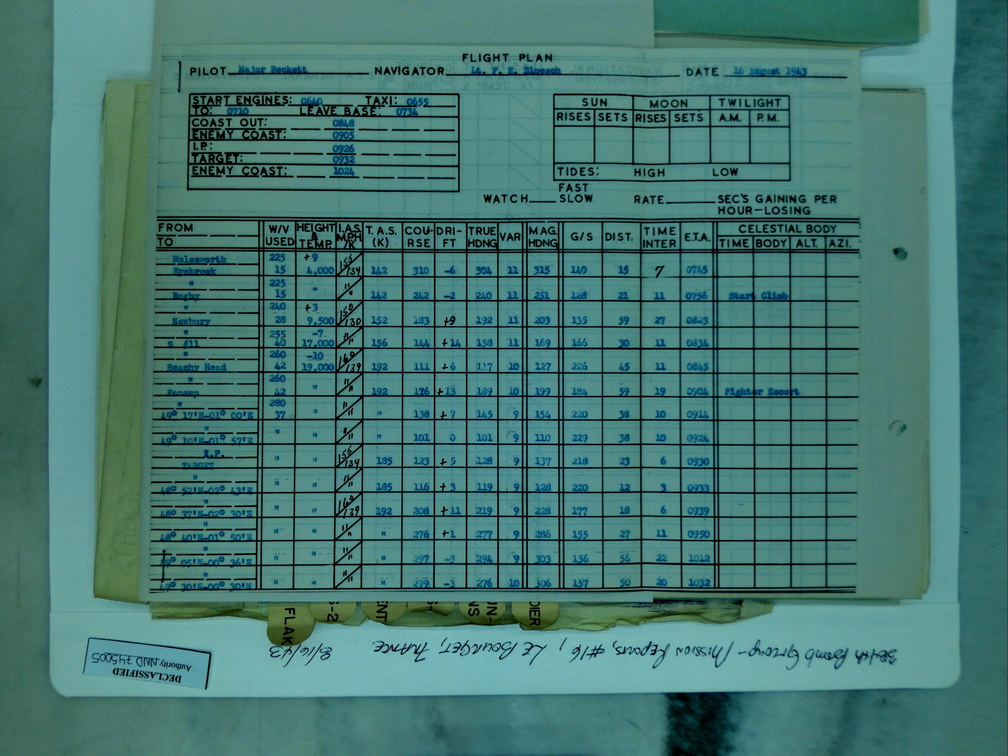 FLIGHT PLAN
PILOT Major Beckett NAVIGATOR Lt. F. E. Bloesch DATE 16 August 1943
START ENGINES: 0640 TAXI: 0655
TO: 0710 LEAVE BASE: 0734
COAST OUT: 0848
ENEMY COAST: 0905
I.P.: 0926
TARGET: 0932
ENEMY COAST: 1024
SUN MOON TWILIGHT
RISES SETS RISES SETS A.M. P.M.
TIDES: HIGH LOW
WATCH FAST SLOW RATE SEC'S GAINING PER HOUR-LOSING
FROM TO W/V USED HEIGHT & TEMP. I.A.S. MPH/K T.A.S. (K) COURSE DRIFT TRUE HDNG VAR MAG. HDNG G/S DIST. TIME INTER E.T.A. CELESTIAL BODY
TIME BODY ALT. AZI.
Molesworth 225 +9 155
Eyebrook 15 4,000 134 142 310 -6 304 11 315 140 15 7 0745
225 " "
Rugby 15 142 242 -2 240 11 251 21 11 0756 Start Climb
240 +3 150
Newbury 28 9,500 130 152 183 +9 192 11 203 135 59 27 0823
" 255 -7 "
S #11 40 17,000 " 156 144 +14 158 11 169 166 30 11 0834
" 260 -10 160
Beachy Head 42 19,000 139 192 111 +6 117 10 127 226 45 11 0845
" 260 " "
Fecamp 42 " 192 176 +13 189 10 199 184 59 19 0504 Fighter Escort
" 280 " "
49° 17'N-01° 00'E 37 " " 138 +7 145 9 154 220 38 10 0914
" " " "
49° 10'N-01° 57'E " " 101 0 101 9 110 229 38 10 0924
" " 155
TARGET 134 185 123 +5 128 9 137 218 23 6 0930
" " " "
48° 52'N-02° 43'E " 185 116 +3 119 9 128 220 12 3 0933
" " " 160
48° 37'N-02° 30'E 139 192 208 +11 219 9 228 177 18 6 0939
" " " "
48° 40'N-01° 50'E " " 276 +1 277 9 286 155 27 11 0950
" " " "
49° 05'N-00° 36'E " " 297 -3 294 9 303 156 56 22 1012
" " "
49° 30'N-00° 30'E " " 279 -3 276 10 306 157 50 20 1032
FLAK
8/16/43
Bomb Group - Mission Reports, #16, Le Bourget, France
DECLASSIFIED
Authority NND 745005